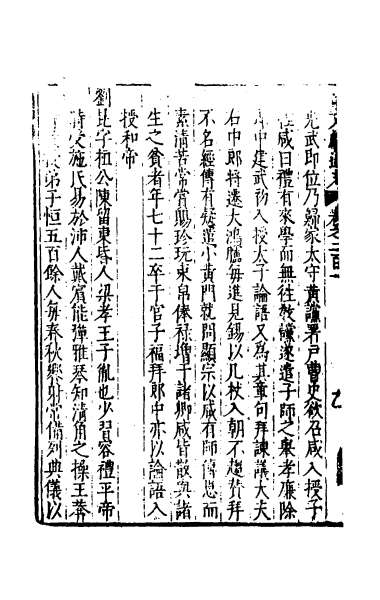 光武即位乃歸鄉家太守黃讜署戶曹史欲召咸入授子
咸曰禮有來學而無往教讜遂遣子師之舉孝廉除
郎中建武初入授太子論語又為其章句拜諫議大夫
右中郎將遷大鴻臚每進見錫以几杖入朝不趨贊拜
不名經傳有疑遣小黃門就問顯宗以咸有師傅恩而
素清苦常賞賜珍玩束帛俸祿增于諸卿咸皆散與諸
生之貧者年七十二卒于官子福拜郎中亦以論語入
授和帝
劉昆字桓公陳留東昏人梁孝王子胤也少習容禮平帝
時受施氏易於沛人戴賓能彈雅琴知清角之操王莽
弟子恒五百餘人每春秋饗射常備列典儀以